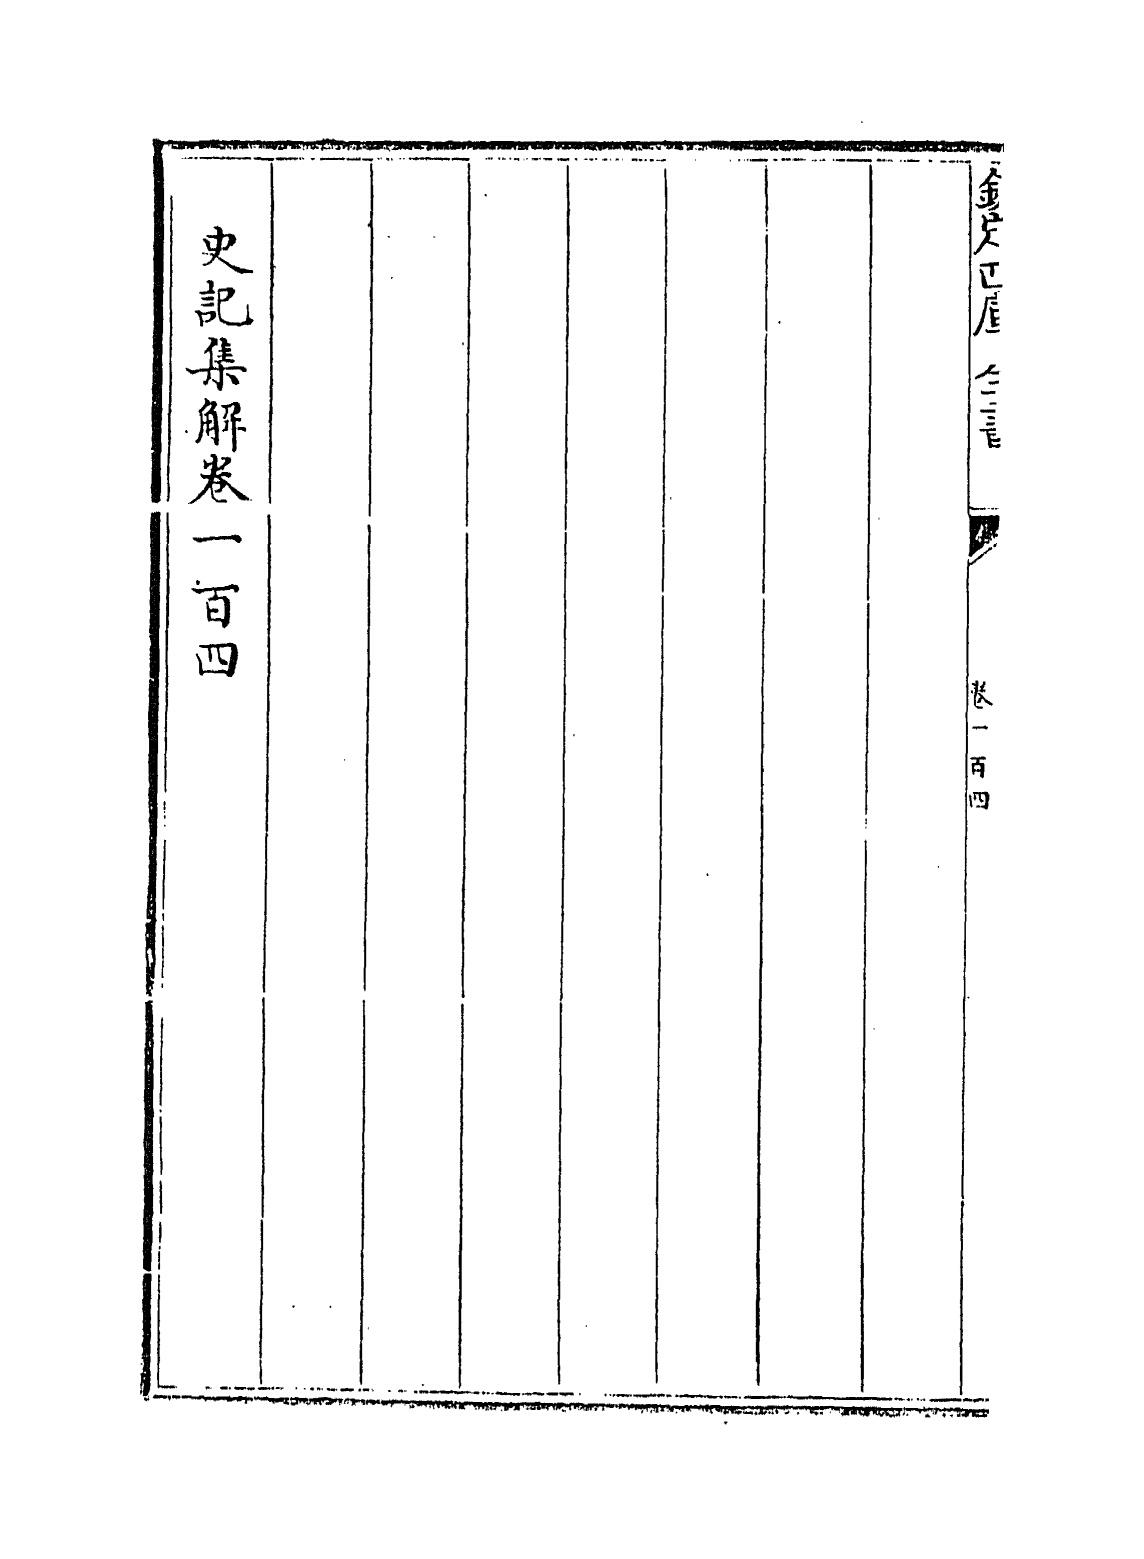 欽定四庫全書
卷一百四
史記集解卷一百四